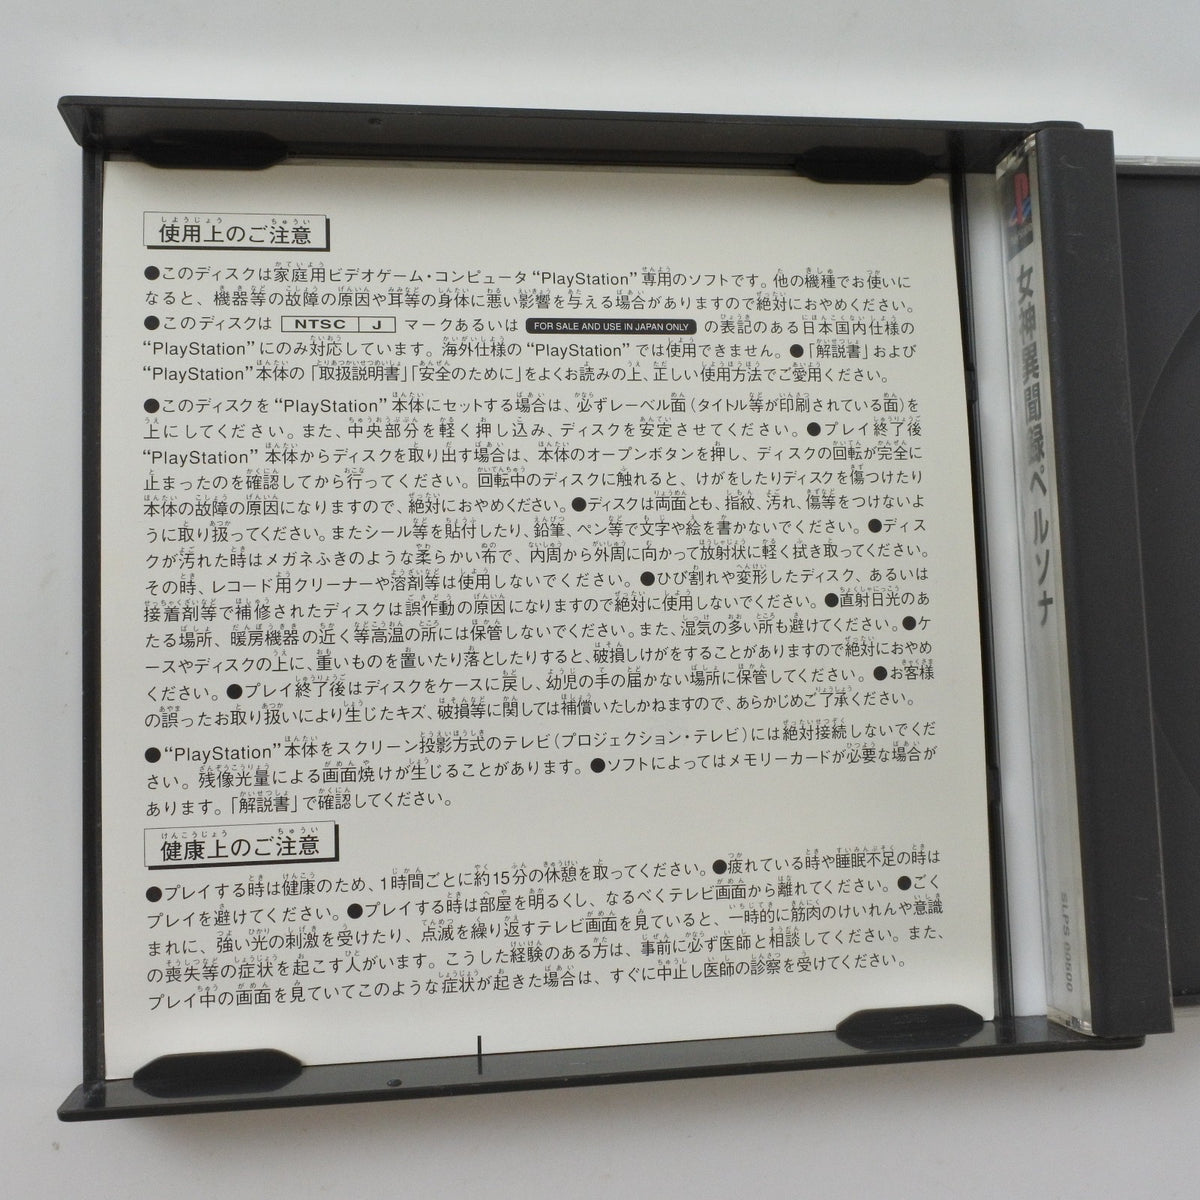 使用上のご注意
●このディスクは家庭用ビデオゲーム・コンピュータ“PlayStation”専用のソフトです。他の機種でお使いに
なると、機器等の故障の原因や耳等の身体に悪い影響を与える場合がありますので絶対におやめください。
●このディスクは NTSC J マークあるいは FOR SALE AND USE IN JAPAN ONLY の表記のある日本国内仕様の
“PlayStation”にのみ対応しています。海外仕様の“PlayStation”では使用できません。●「解説書」および
“PlayStation”本体の「取扱説明書」「安全のために」をよくお読みの上、正しい使用方法でご愛用ください。
●このディスクを“PlayStation”本体にセットする場合は、必ずレーベル面(タイトル等が印刷されている面)を
上にしてください。また、中央部分を軽く押し込み、ディスクを安定させてください。●プレイ終了後
“PlayStation”本体からディスクを取り出す場合は、本体のオープンボタンを押し、ディスクの回転が完全に
止まったのを確認してから行ってください。回転中のディスクに触れると、けがをしたりディスクを傷つけたり
本体の故障の原因になりますので、絶対におやめください。●ディスクは両面とも、指紋、汚れ、傷等をつけないよ
うに取り扱ってください。またシール等を貼付したり、鉛筆、ペン等で文字や絵を書かないでください。●ディス
クが汚れた時はメガネふきのような柔らかい布で、内周から外周に向かって放射状に軽く拭き取ってください。
その時、レコード用クリーナーや溶剤等は使用しないでください。●ひび割れや変形したディスク、あるいは
接着剤等で補修されたディスクは誤作動の原因になりますので絶対に使用しないでください。●直射日光のあ
たる場所、暖房機器の近く等高温の所には保管しないでください。また、湿気の多い所も避けてください。●ケ
ースやディスクの上に、重いものを置いたり落としたりすると、破損しけがをすることがありますので絶対におやめ
ください。●プレイ終了後はディスクをケースに戻し、幼児の手の届かない場所に保管してください。●お客様
の誤ったお取り扱いにより生じたキズ、破損等に関しては補償いたしかねますので、あらかじめご了承ください。
●“PlayStation”本体をスクリーン投影方式のテレビ(プロジェクション・テレビ)には絶対接続しないでくだ
さい。残像光量による画面焼けが生じることがあります。●ソフトによってはメモリーカードが必要な場合が
あります。「解説書」で確認してください。
健康上のご注意
●プレイする時は健康のため、1時間ごとに約15分の休憩を取ってください。●疲れている時や睡眠不足の時は
プレイを避けてください。●プレイする時は部屋を明るくし、なるべくテレビ画面から離れてください。●ごく
まれに、強い光の刺激を受けたり、点滅を繰り返すテレビ画面を見ていると、一時的に筋肉のけいれんや意識
の喪失等の症状を起こす人がいます。こうした経験のある方は、事前に必ず医師と相談してください。また、
プレイ中の画面を見ていてこのような症状が起きた場合は、すぐに中止し医師の診察を受けてください。
女神異聞録ペルソナ
SLPS 00500